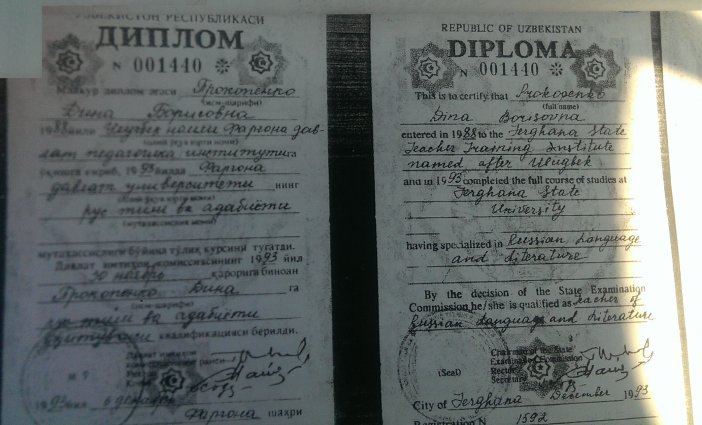 ЎЗБЕКИСТОН РЕСПУБЛИКАСИ
ДИПЛОМ
N 001440
Мазкур диплом эгаси Прокопенко
(исм-шарифи)
Дина Борисовна
1988 йили Улуғбек номли Фарғона дав-
лат педагогика институтига
ўқишга кириб, 1993 йилда Фарғона
давлат университети нинг
(олий ўқув юрти номи)
рус тили ва адабиёти
(мутахассислик номи)
мутахассислиги бўйича тўлиқ курсини тугатди.
Давлат имтиҳон комиссиясининг 1993 йил
30 ноябрь қарорига биноан
Прокопенко Дина га
(исм-шарифи)
рус тили ва адабиёти
ўқитувчиси квалификацияси берилди.
Давлат имтиҳон
М.Ў.
1993 йил 6 декабрь
Фарғона шаҳри
REPUBLIC OF UZBEKISTAN
DIPLOMA
N 001440
This is to certify that Prokopenko
(full name)
Dina Borisovna
entered in 1988 to the Ferghana State
Teacher Training Institute
named after Ulugbek
and in 1993 completed the full course of studies at
Ferghana State
University
having specialized in Russian Language
and Literature
By the decision of the State Examination
Commission he/she is qualified as teacher of
Russian Language and Literature
Chairman of the State
Examination Commission
Rector
Secretary
(Seal)
City of Ferghana December 1993
Registration N 1592